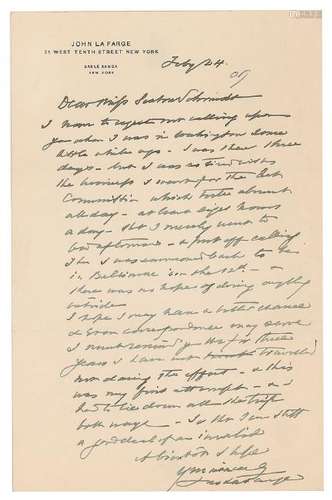 JOHN LA FARGE
51 WEST TENTH STREET NEW YORK
CABLE
NEW YORK
Feby 24
09
Dear Miss
I have to regret not calling upon
you when I was in Washington some
little while ago - I was there three
days - but I was so tired with
the business I went for the
Committee which took almost
all day - at least eight hours
a day - that I merely went to
bed afterwards - & put off calling
I was summoned back to be
in Baltimore on the 12th - &
there was no hope of doing anything
outside
I hope I may have a better chance
& soon correspondence may serve
I must remind you that for three
years I have not travelled
not daring the effort - & this
was my first attempt - and I
had to lie down all the trip
both ways - So that I am still
a good deal of an invalid
I hope
Yours
La Farge